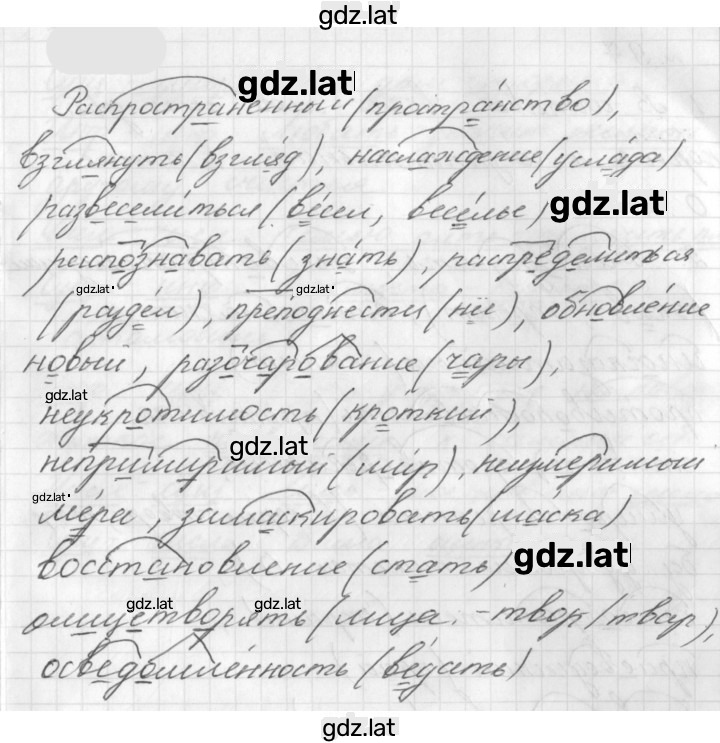 gdz.lat
gdz.lat
Распространенный (простра́нство),
взглянуть (взгля́д), наслаждение (усла́да)
развесели́ться (ве́сел, весе́лье), gdz.lat
распознавать (зна́ть), распределиться
gdz.lat gdz.lat
(разде́л), преподнести (нё), обновле́ние
новый, разочарование (чары),
gdz.lat
неукротимость (кро́ткий),
gdz.lat
непримиримый (ми́р), неизмеримый
gdz.lat
ме́ра, замаскировать (ма́ска)
восстановление (стать) gdz.lat
gdz.lat gdz.lat
олицетворять (лица - твор (твар),
осведомлённость (ве́дать)
gdz.lat